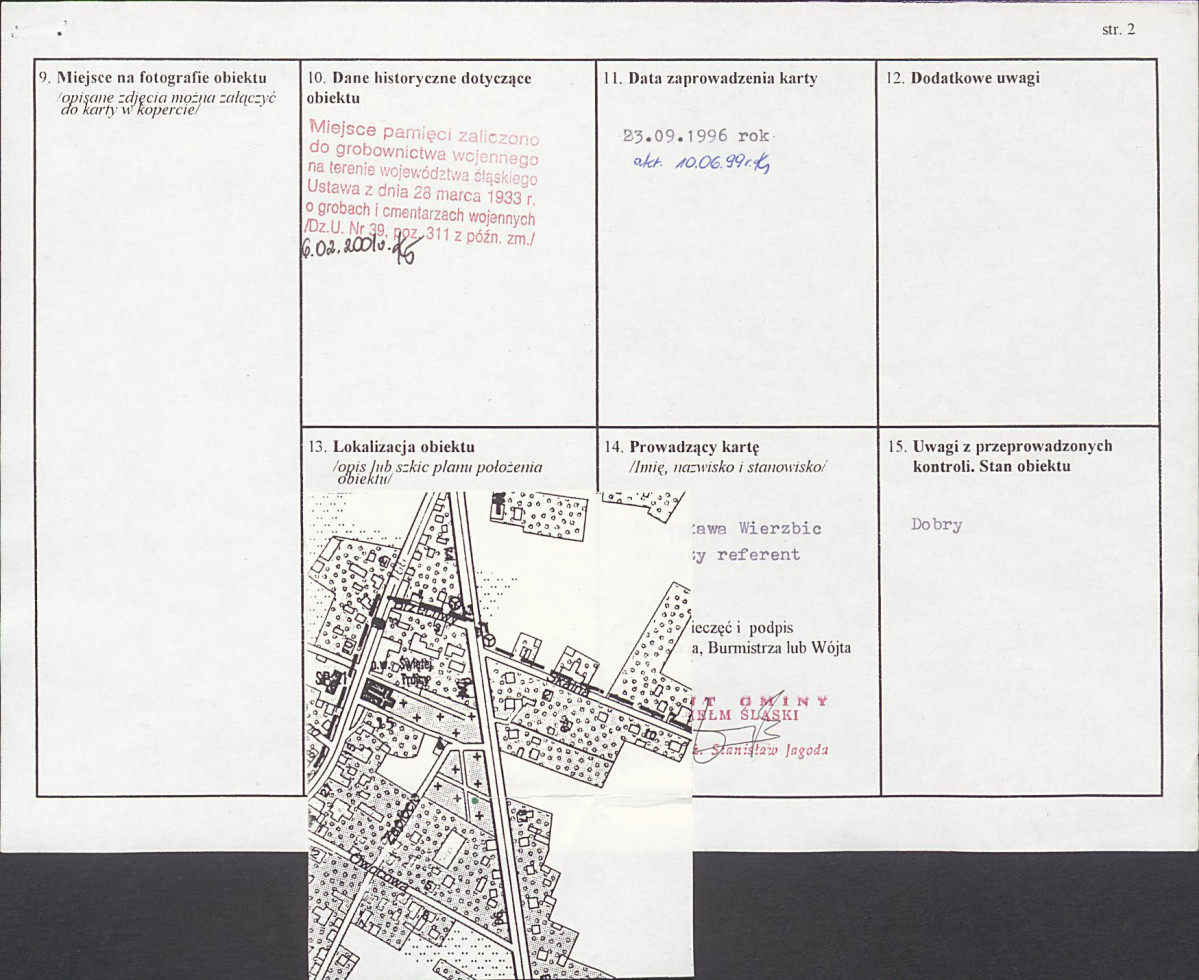 str. 2
9. Miejsce na fotografie obiektu
/opisane zdjęcia można załączyć
do karty w kopercie/
10. Dane historyczne dotyczące
obiektu
Miejsce pamięci zaliczono
do grobownictwa wojennego
na terenie województwa śląskiego
Ustawa z dnia 28 marca 1933 r.
o grobach i cmentarzach wojennych
/Dz.U. Nr 39, poz. 311 z późn. zm./
6.02.2001r.
11. Data zaprowadzenia karty
23.09.1996 rok
akt. 10.06.99r.
12. Dodatkowe uwagi
13. Lokalizacja obiektu
/opis lub szkic planu położenia
obiektu/
Brzegowy
p.w. Świętej
Trójcy
Skalna
10
15
27
Zapłocie
Owocowa
21
5
14. Prowadzący kartę
/Imię, nazwisko i stanowisko/
ława Wierzbic
y referent
ieczęć i podpis
a, Burmistrza lub Wójta
T GMINY
EŁM ŚLĄSKI
ż. Stanisław Jagoda
15. Uwagi z przeprowadzonych
kontroli. Stan obiektu
Dobry